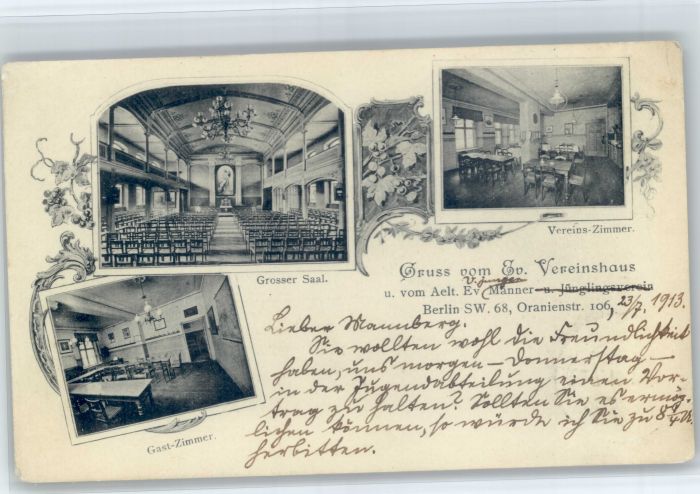 Grosser Saal.
Vereins-Zimmer.
Gast-Zimmer.
Gruss vom Ev. Vereinshaus
u. vom Aelt. Ev. Männer- u. Jünglingsverein
Berlin SW. 68, Oranienstr. 106, 23/7. 1913.
Lieber Mannberg.
Sie wollten wohl die Freundlichkeit
haben, uns morgen – Donnerstag –
in der Jugendabteilung einen Vor-
trag zu halten? Sollten Sie es ermög-
lichen können, so würde ich Sie zu 8 1/4 U.
herbitten.